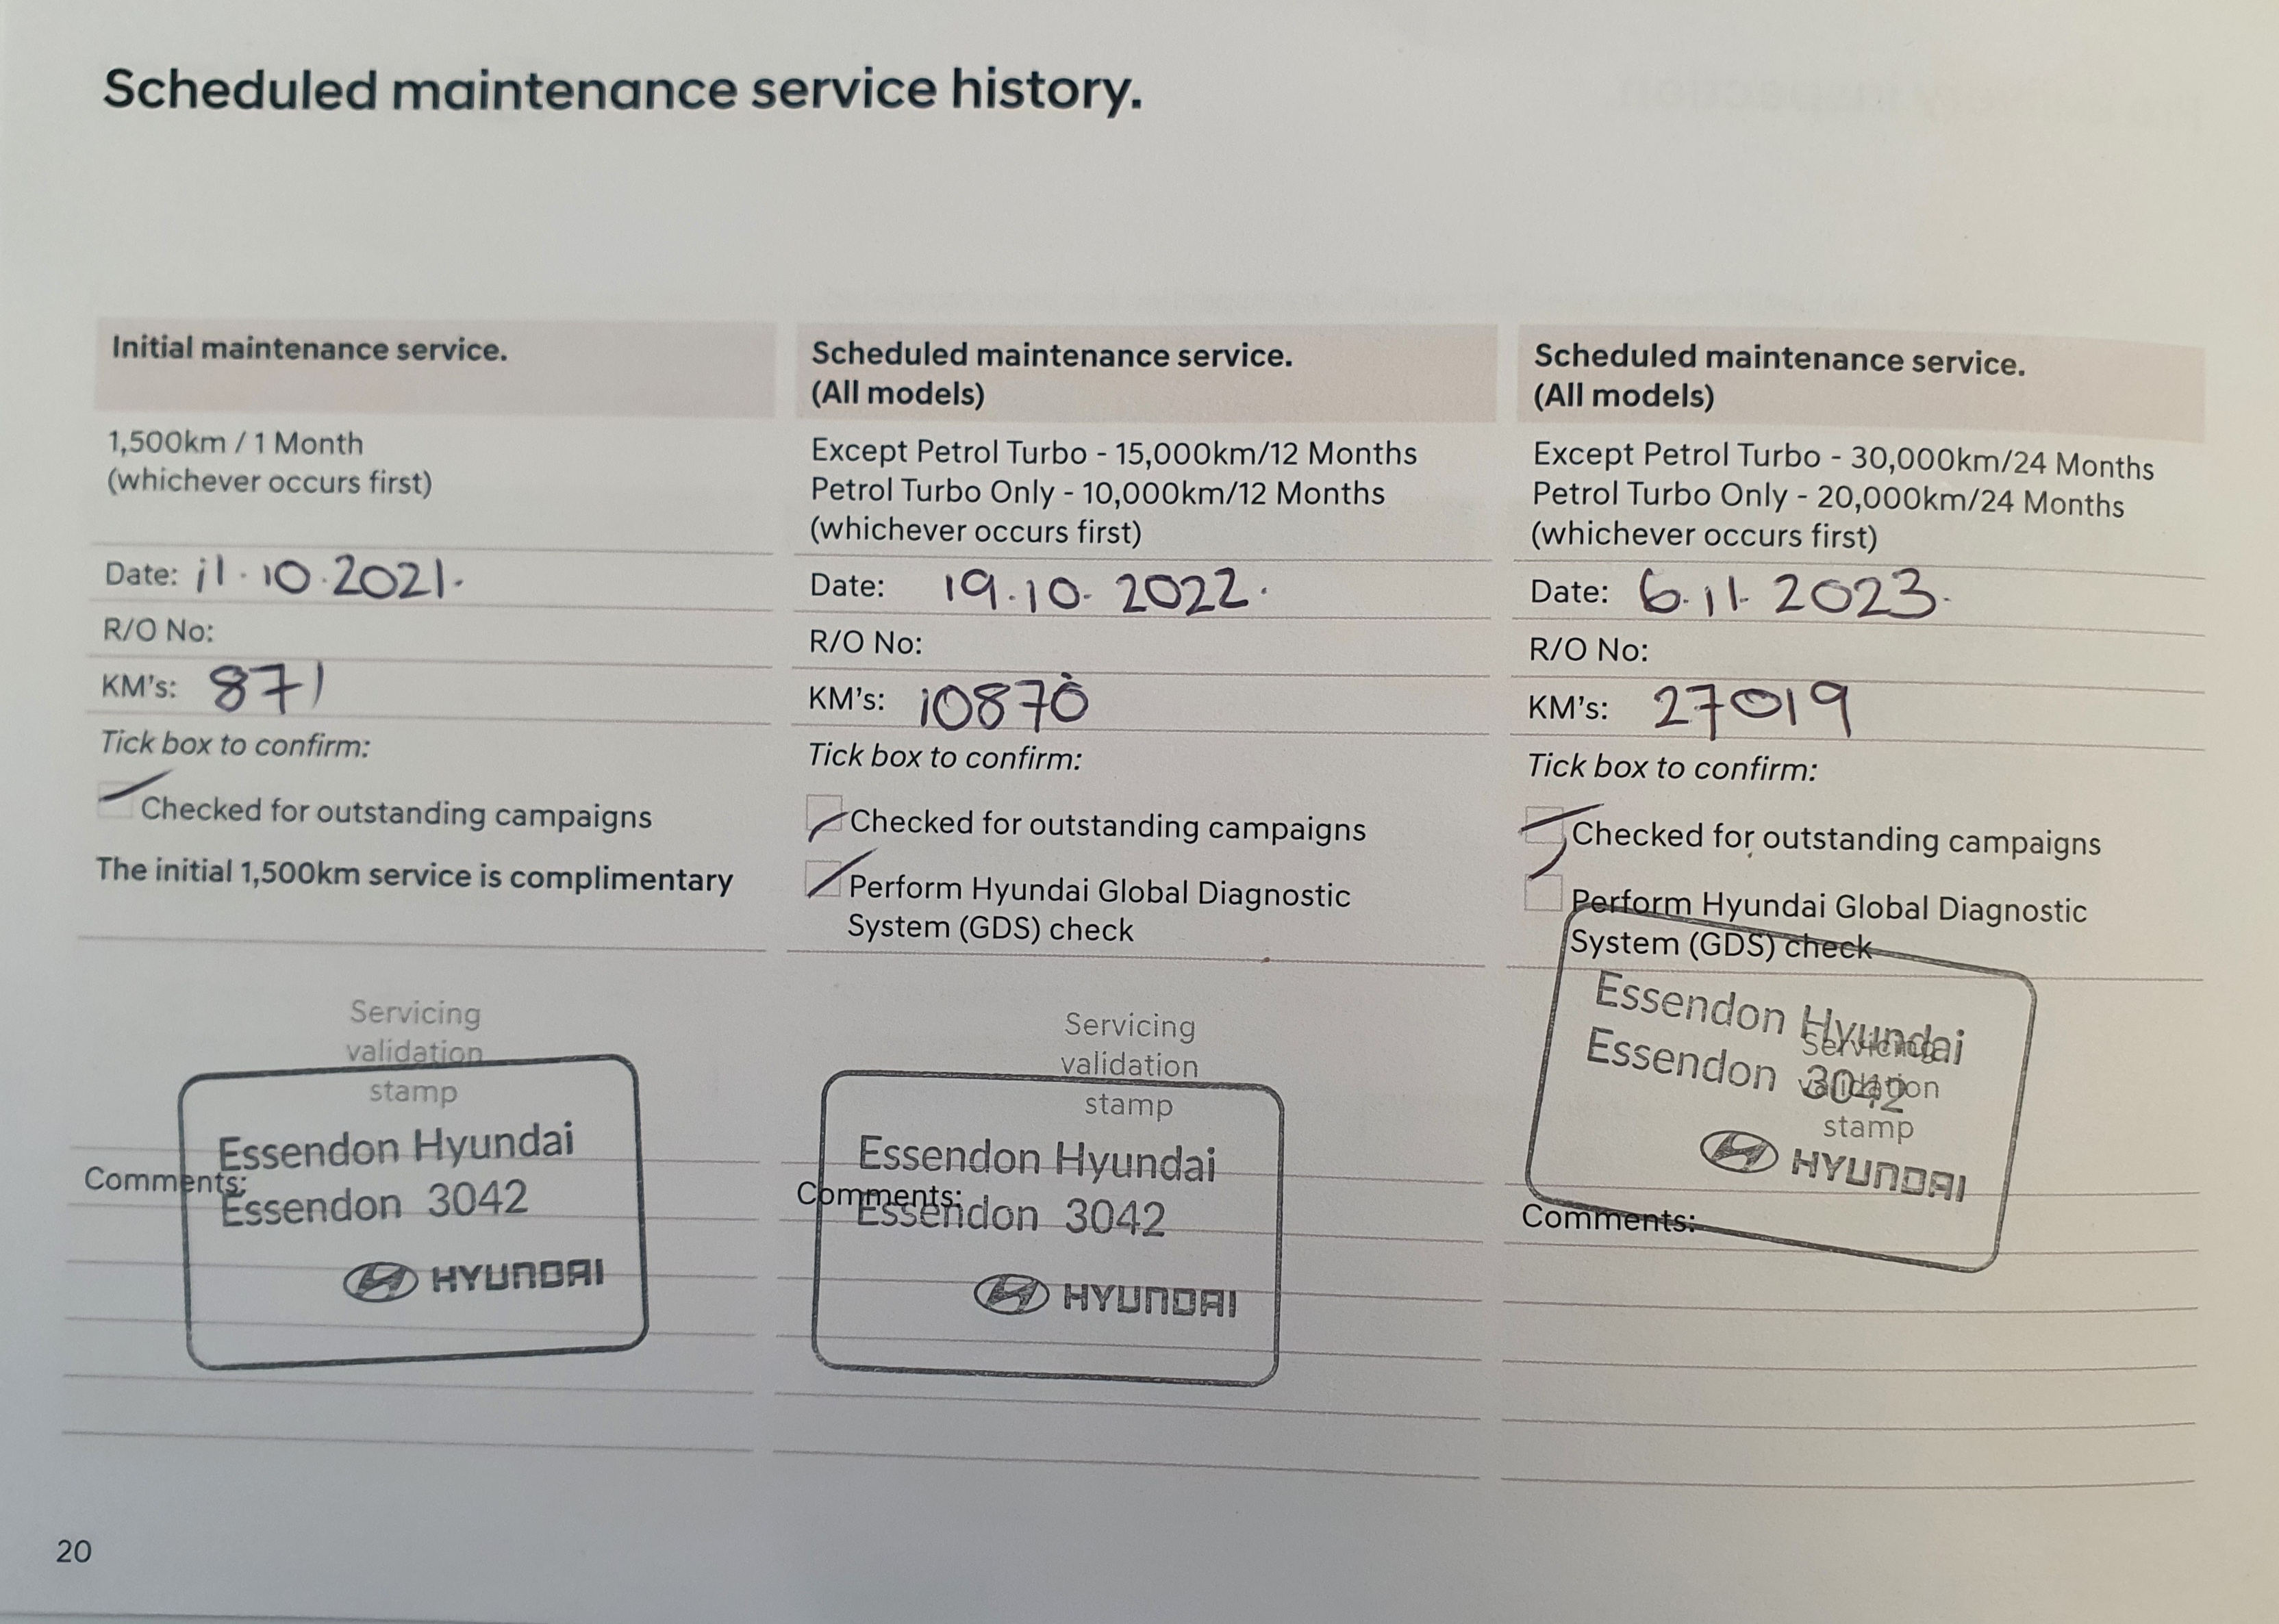 Scheduled maintenance service history.
Initial maintenance service.
1,500km / 1 Month
(whichever occurs first)
Date: 11.10.2021.
R/O No:
KM's: 871
Tick box to confirm:
Checked for outstanding campaigns
The initial 1,500km service is complimentary
Servicing
validation
stamp
Essendon Hyundai
Comments:
Essendon 3042
HYUNDAI
Scheduled maintenance service.
(All models)
Except Petrol Turbo - 15,000km/12 Months
Petrol Turbo Only - 10,000km/12 Months
(whichever occurs first)
Date: 19.10.2022.
R/O No:
KM's: 10870
Tick box to confirm:
Checked for outstanding campaigns
Perform Hyundai Global Diagnostic
System (GDS) check
Servicing
validation
stamp
Essendon Hyundai
Comments:
Essendon 3042
HYUNDAI
Scheduled maintenance service.
(All models)
Except Petrol Turbo - 30,000km/24 Months
Petrol Turbo Only - 20,000km/24 Months
(whichever occurs first)
Date: 6.11.2023.
R/O No:
KM's: 27019
Tick box to confirm:
Checked for outstanding campaigns
Perform Hyundai Global Diagnostic
System (GDS) check
Essendon Hyundai
Servicing
Essendon 3042
validation
stamp
HYUNDAI
Comments:
20